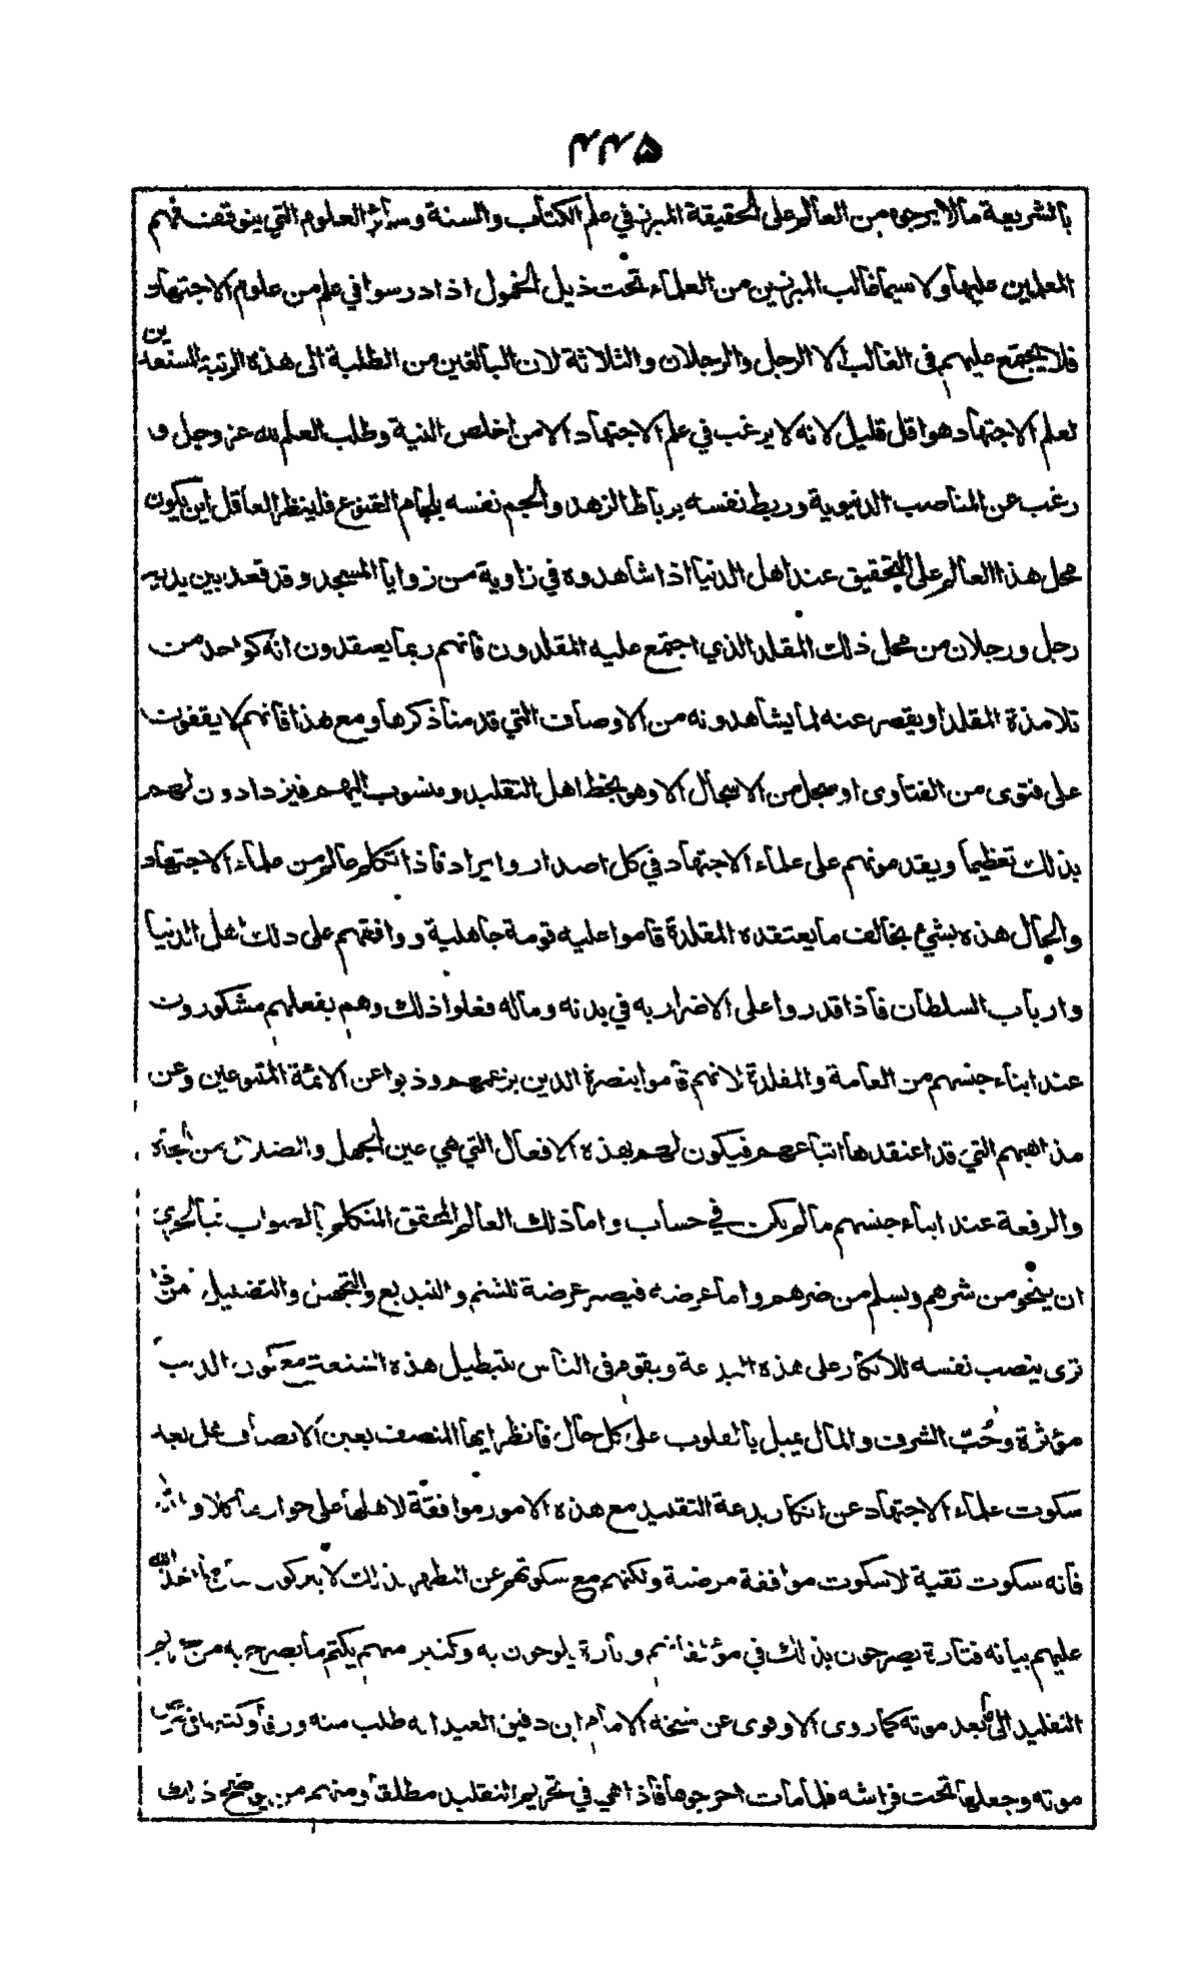 ۴۴۵
بالشريعة ما لا يرجوه من العالم على الحقيقة المبرز في علم الكتاب والسنة وسائر العلوم التي يتوقف فهم
المعلمين عليها ولا سيما غالب المبرزين من العلماء تحت ذيل الخمول اذا درسوا في علم من علوم الاجتهاد
فلا يجتمع عليهم في الغالب الا الرجل والرجلان والثلاثة لان البالغين من الطلبة الى هذه الرتبة المستعدين
لعلم الاجتهاد هو اقل قليل لانه لا يرغب في علم الاجتهاد الا من اخلص النية وطلب العلم لله عز وجل و
رغب عن المناصب الدنيوية وربط نفسه برباط الزهد والجم نفسه بلجام القنوع فلينظر العاقل اين يكون
محل هذا العالم على التحقيق عند اهل الدنيا اذا شاهدوه في زاوية من زوايا المسجد وقد قعد بين يديه
رجل ورجلان من محل ذلك المقلد الذي اجتمع عليه المقلدون فانهم ربما يعتقدون انه كواحد من
تلامذة المقلد او يقصر عنه لما يشاهدونه من الاوصاف التي قدمنا ذكرها ومع هذا فانهم لا يقفون
على فتوى من الفتاوى او سجل من الاسجال الا وهو بخط اهل التقليد ومنسوب اليهم فيزدادون لهم
بذلك تعظيما ويقدمونهم على علماء الاجتهاد في كل اصدار وايراد فاذا تكلم عالم من علماء الاجتهاد
والحال هذه بشيء يخالف ما يعتقده المقلدة قاموا عليه قومة جاهلية ووافقهم على ذلك اهل الدنيا
وارباب السلطان فاذا قدروا على الاضرار به في بدنه وماله فعلوا ذلك وهم بفعلهم مشكورون
عند ابناء جنسهم من العامة والمقلدة لانهم قاموا بنصرة الدين بزعمهم وذبوا عن الائمة المتبوعين وعن
مذاهبهم التي قد اعتقدها اتباعهم فيكون لهم بهذه الافعال التي هي عين الجهل والضلال من الجاه
والرفعة عند ابناء جنسهم ما لم يكن في حساب واما ذلك العالم المحقق المتكلم بالصواب فبالحري
ان ينجو من شرهم ويسلم من ضرهم واما عرضه فيصير عرضة للشتم والتبديع والتجهيل والتضليل فمن ذا
ترى ينصب نفسه للانكار على هذه البدعة ويقوم في الناس بتبطيل هذه الشنعة مع كون الدنيا
مؤثرة وحُبّ الشرف والمال يميل بالقلوب على كل حال فانظر ايها المنصف بعين الانصاف هل يعد
سكوت علماء الاجتهاد عن انكار بدعة التقليد مع هذه الامور موافقة لاهلها على جوازها كلا والله
فانه سكوت تقية لا سكوت موافقة مرضية ولكنهم مع سكوتهم عن التظهر بذلك لا يتركون بيان ما اخذ الله
عليهم بيانه فتارة يصرحون بذلك في مؤلفاتهم وتارة يلوحون به وكثير منهم يكتم ما يصرح به من تحريم
التقليد الى ما بعد موته كما روى الادفوي عن شيخه الامام ابن دقيق العيد انه طلب منه ورقا وكتبها في مرض
موته وجعلها تحت فراشه فلما مات اخرجوها فاذا هي في تحريم التقليد مطلقا ومنهم من يوضح ذلك